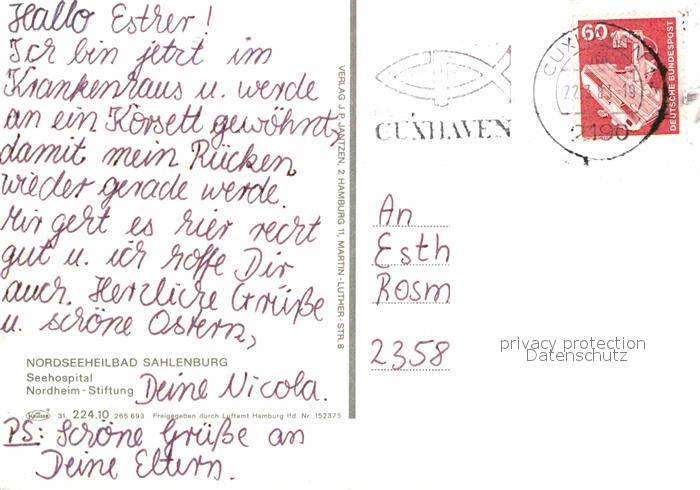 Hallo Esther!
Ich bin jetzt im
Krankenhaus u. werde
an ein Korsett gewöhnt,
damit mein Rücken
wieder gerade werde.
Mir geht es hier recht
gut u. ich hoffe Dir
auch. Herzliche Grüße
u. schöne Ostern,
NORDSEEHEILBAD SAHLENBURG
Seehospital
Nordheim-Stiftung
Deine Nicola.
Krüger 31. 224.10 265 693 Freigegeben durch Luftamt Hamburg lfd. Nr. 152375
PS: Schöne Grüße an
Deine Eltern.
VERLAG J. P. JANTZEN, 2 HAMBURG 11, MARTIN-LUTHER-STR. 8
CUXHAVEN
2190
60
DEUTSCHE BUNDESPOST
An
Esth
Rosm
2358
privacy protection
Datenschutz